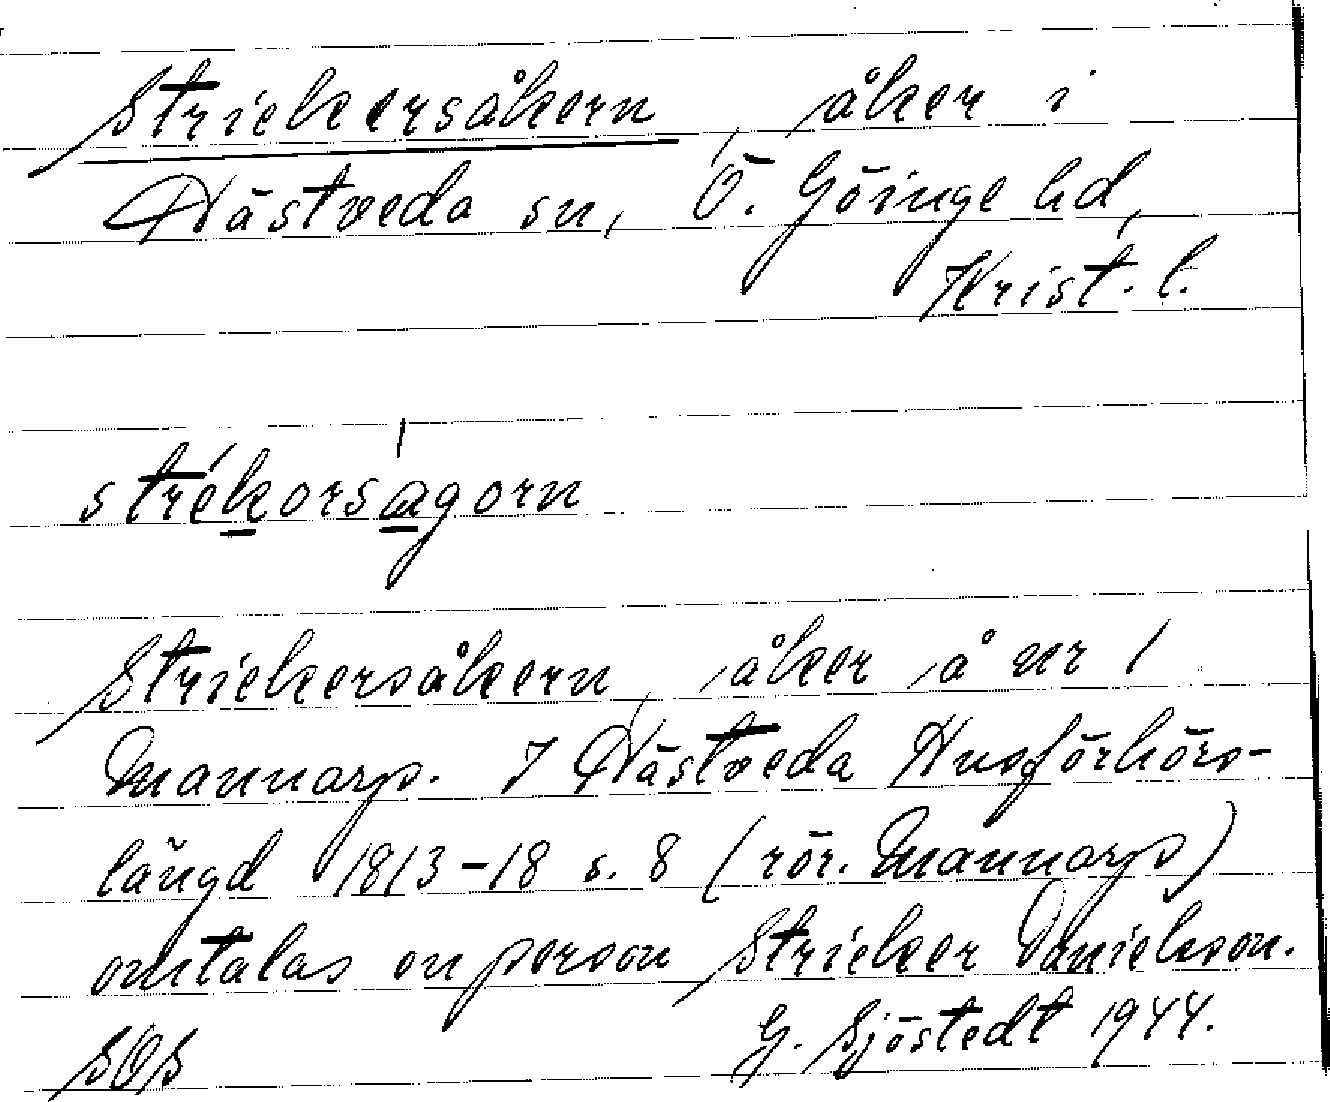 Strickersåkern, åker i
Hästveda sn, Ö. Göinge hd,
Krist. l.
strékorságorn
Strickersåkern, åker å nr 1
Mannarp. I Hästveda Husförhörs-
längd 1813-18 s. 8 (rör. Mannarp)
omtalas en person Stricker Danielsson.
SOS G. Sjöstedt 1944.